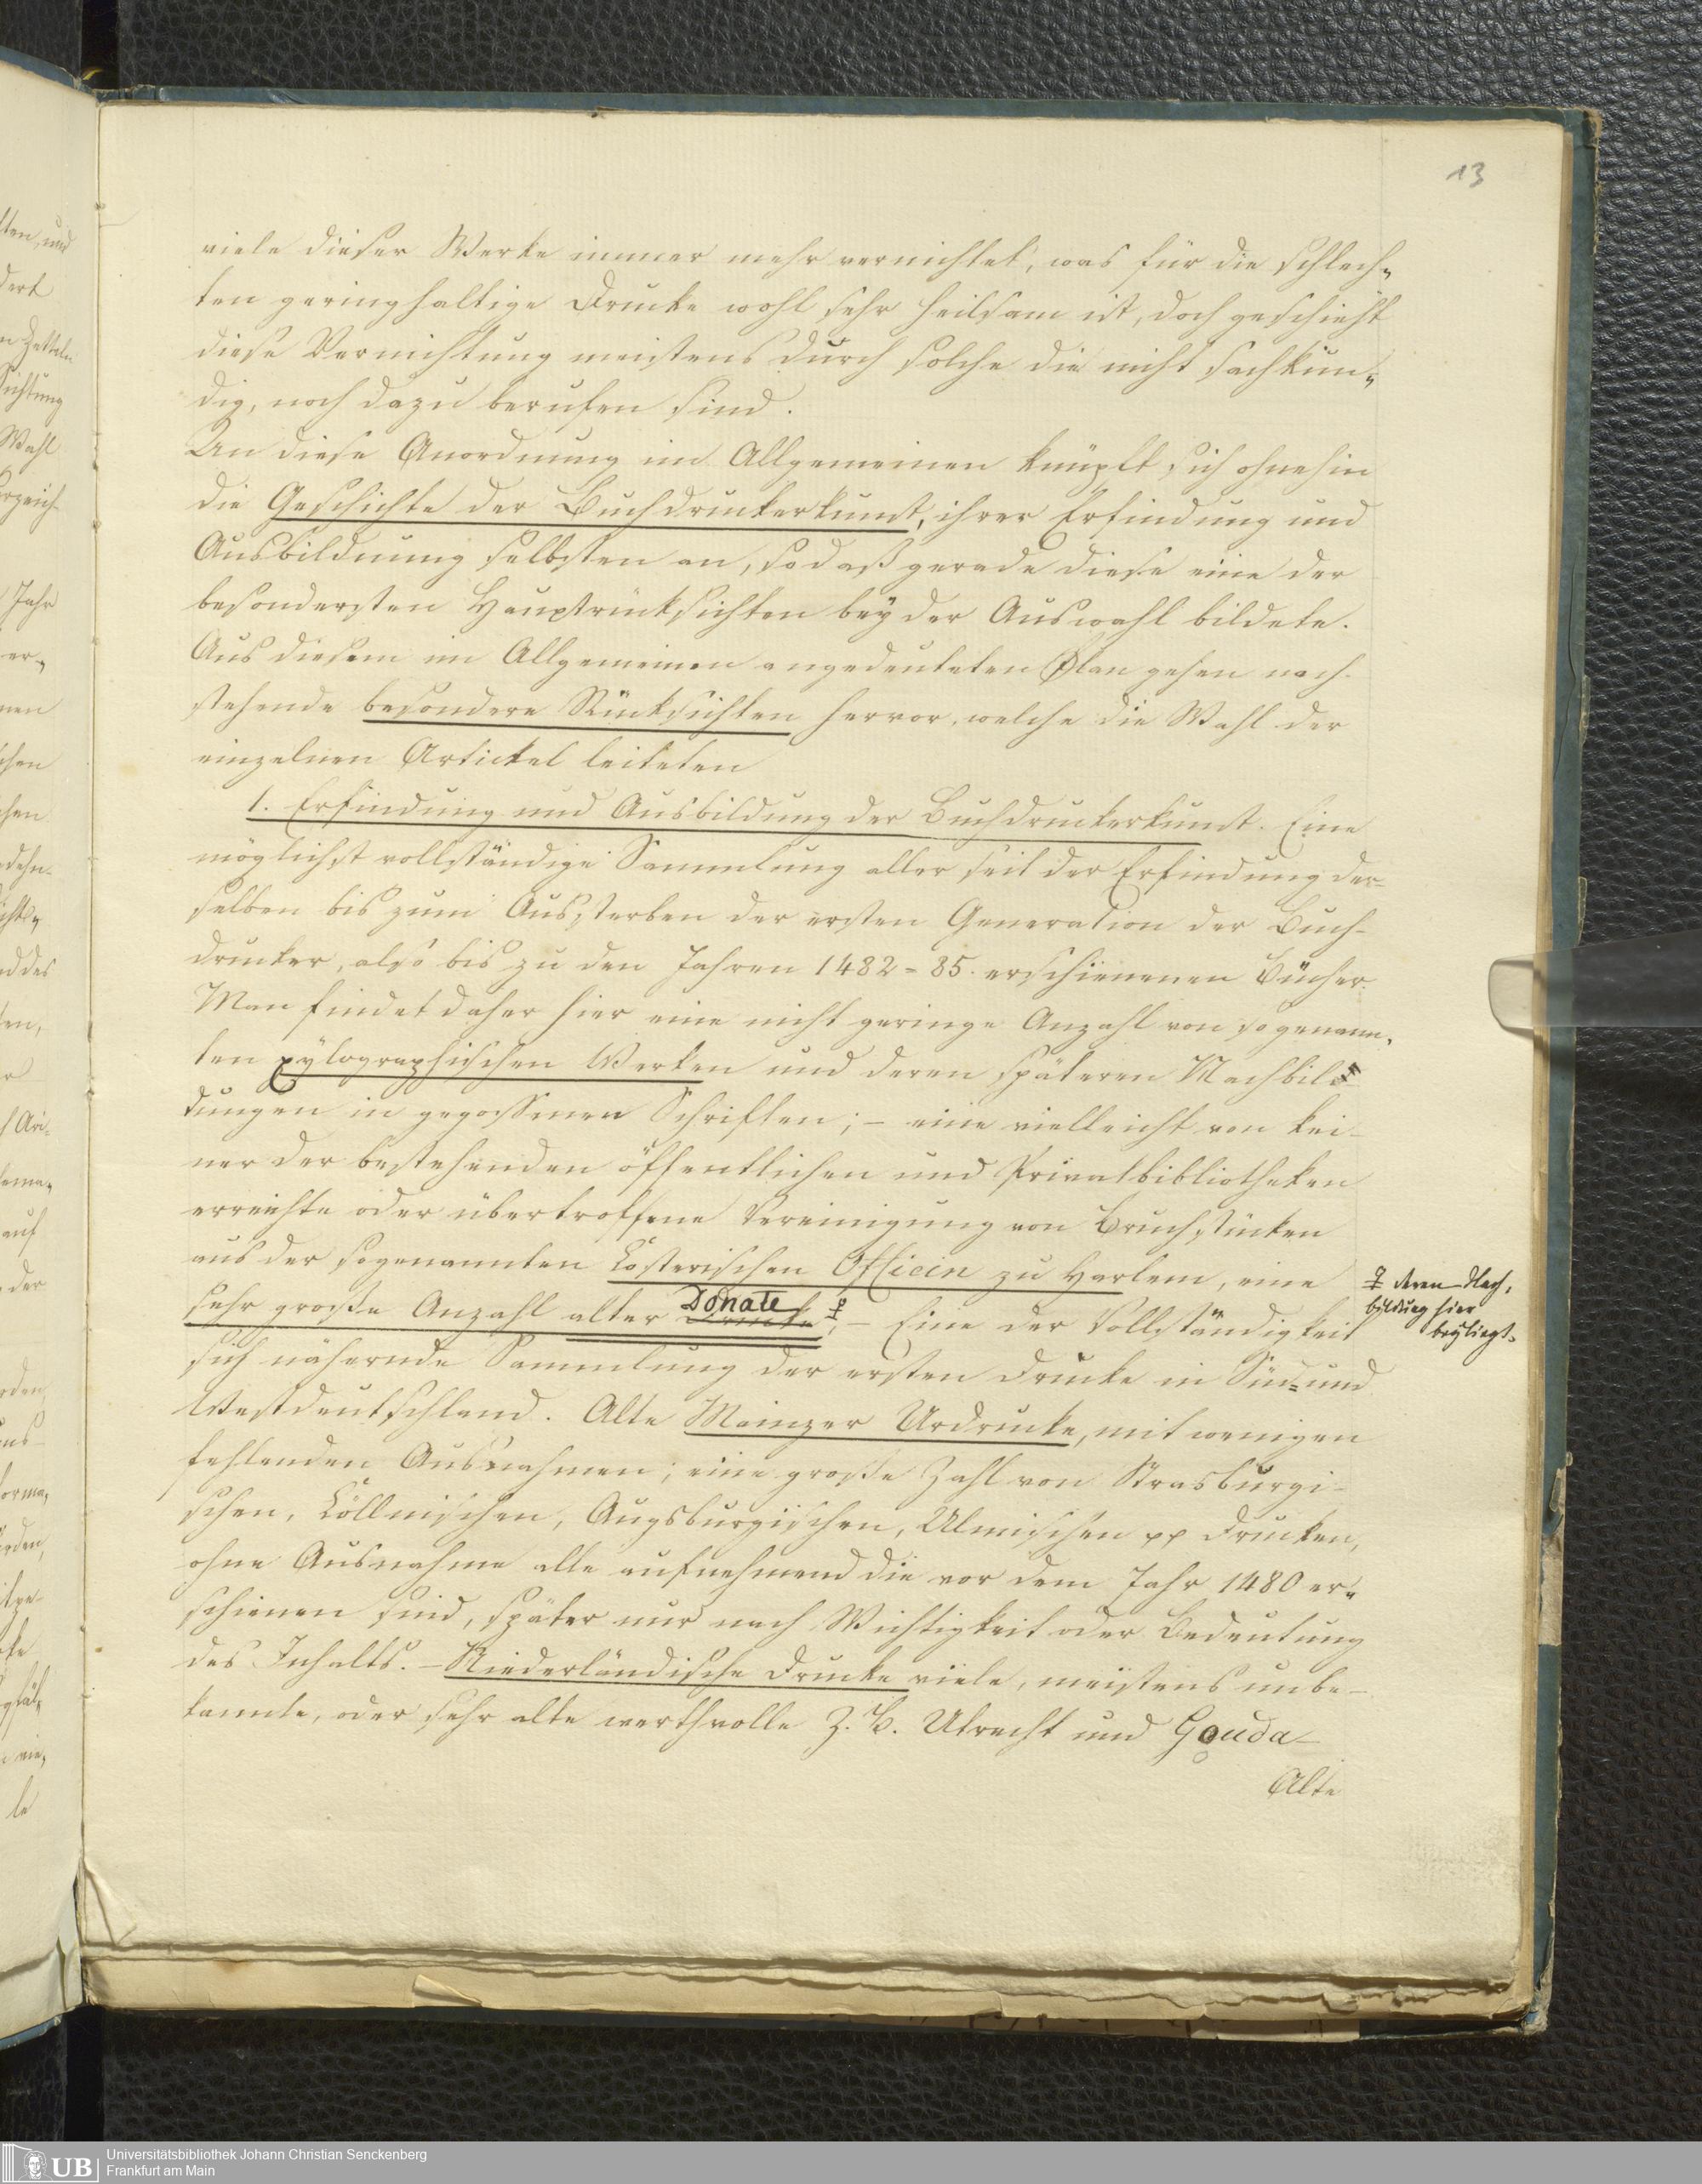 13
viele dieser Werke immer mehr vernichtet, was für die schlech„
ten geringhaltige Drucke wohl sehr heilsam ist, doch geschieht
diese Vernichtung meistens durch solche die nicht sachkün„
dig, noch dazu berufen sind.
An diese Anordnung im Allgemeinen knüpft sich ohnehin
die Geschichte der Buchdruckerkunst, ihrer Erfindung und
Ausbildnung selbsten an, so daß gerade diese eine der
besondersten Hauptrücksichten bey der Auswahl bildete.
Aus diesem im Allgemeinen angedeuteten Plan gehen nach-
stehende besondere Rücksichten hervor, welche die Wahl der
einzelnen Artickel leiteten
1. Erfindung und Ausbildung der Buchdruckerkunst. Eine
möglichst vollständige Sammlung aller seit der Erfindung der-
selben bis zum Aussterben der ersten Generation der Buch-
drucker, also bis zu den Jahren 1482=85. erschienenen Bücher.
Man findet daher hier eine nicht geringe Anzahl von sogenann„
ten xylographischen Werken und deren späteren Nachbil=
dungen in gegossenen Schriften; – eine vielleicht von kei-
ner der bestehenden öffentlichen und Privatbibliotheken
erreichte oder übertroffene Vereinigung von Bruchstücken
aus der sogenannten Costerischen Officin zu Harlem, eine
sehr große Anzahl alter Donate Drucke ♀; – Eine der Vollständigkeit
♀ deren Nach„
bildung hier
beyliegt.
sich nähernde Sammlung der ersten Drucke in Süd= und
Westdeutschland. Alte Mainzer Urdrucke, mit wenigen
fehlenden Ausnahmen; eine große Zahl von Strasburgi-
schen, Cöllnischen, Augsburgischen, Ulmischen pp Drucken,
ohne Ausnahme alle aufnehmend die vor dem Jahr 1480 er„
schienen sind, später nur nach Wichtigkeit oder Bedeutung
des Inhalts. – Niederländische Drucke viele, meistens unbe-
kannte, oder sehr alte werthvolle z. B. Utrecht und Gouda –
Alte
UB Universitätsbibliothek Johann Christian Senckenberg
Frankfurt am Main